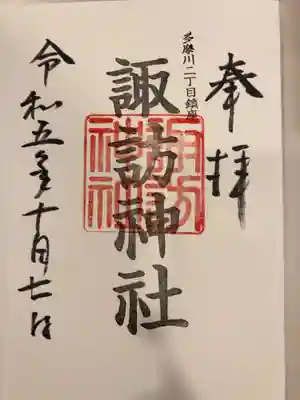 奉拝
多摩川二丁目鎮座
諏訪神社
諏訪神社
令和五年十月七日